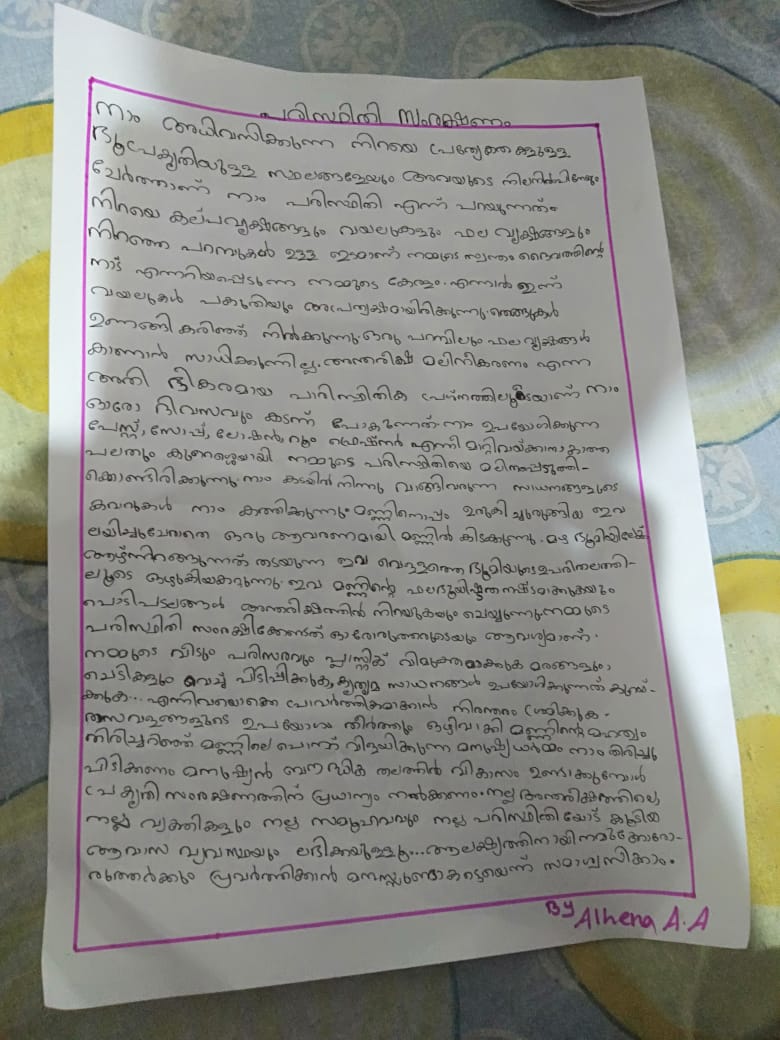 പരിസ്ഥിതി സംരക്ഷണം
നാം അധിവസിക്കുന്ന നിറയെ പ്രത്യേകതകളുള്ള
ഭൂപ്രകൃതിയുള്ള സ്ഥലങ്ങളേയും അവയുടെ നിലനിൽപിനേയും
ചേർത്താണ് നാം പരിസ്ഥിതി എന്ന് പറയുന്നത്.
നിറയെ കല്പവൃക്ഷങ്ങളും വയലുകളും ഫല വൃക്ഷങ്ങളും
നിറഞ്ഞ പറമ്പുകൾ ഉള്ള ഇടമാണ് നമ്മുടെ സ്വന്തം ദൈവത്തിന്റെ
നാട് എന്നറിയപ്പെടുന്ന നമ്മുടെ കേരളം. എന്നാൽ ഇന്ന്
വയലുകൾ പകുതിയും അപ്രത്യക്ഷമായിരിക്കുന്നു. തെങ്ങുകൾ
ഉണങ്ങി കരിഞ്ഞ് നിൽക്കുന്നു. ഒരു പറമ്പിലും ഫല വൃക്ഷങ്ങൾ
കാണാൻ സാധിക്കുന്നില്ല. അന്തരീക്ഷ മലിനീകരണം എന്ന
അതി ഭീകരമായ പാരിസ്ഥിതിക പ്രശ്നത്തിലൂടെയാണ് നാം
ഓരോ ദിവസവും കടന്ന് പോകുന്നത്. നാം ഉപയോഗിക്കുന്ന
പേസ്റ്റ്, സോപ്പ്, ലോഷൻ, റൂം ഫ്രെഷ്നർ എന്നീ മാറ്റിവയ്ക്കാനാകാത്ത
പലതും കുറേശ്ശെയായി നമ്മുടെ പരിസ്ഥിതിയെ മലിനപ്പെടുത്തി-
ക്കൊണ്ടിരിക്കുന്നു. നാം കടയിൽ നിന്നു വാങ്ങിവരുന്ന സാധനങ്ങളുടെ
കവറുകൾ നാം കത്തിക്കുന്നു. മണ്ണിനൊപ്പം ഉരുകി ചുരുങ്ങിയ ഇവ
ലയിച്ചുചേരാതെ ഒരു ആവരണമായി മണ്ണിൽ കിടക്കുന്നു. മഴ ഭൂമിയിലേക്ക്
ആഴ്ന്നിറങ്ങുന്നത് തടയുന്ന ഇവ വെള്ളത്തെ ഭൂമിയുടെ ഉപരിതലത്തി-
ലൂടെ ഒഴുകിയകറ്റുന്നു. ഇവ മണ്ണിന്റെ ഫലഭൂയിഷ്ടത നഷ്ടമാക്കുകയും
പൊടിപടലങ്ങൾ അന്തരീക്ഷത്തിൽ നിറയുകയും ചെയ്യുന്നു. നമ്മുടെ
പരിസ്ഥിതി സംരക്ഷിക്കേണ്ടത് ഓരോരുത്തരുടെയും ആവശ്യമാണ്.
നമ്മുടെ വീടും പരിസരവും പ്ലാസ്റ്റിക് വിമുക്തമാക്കുക മരങ്ങളും,
ചെടികളും വെച്ച് പിടിപ്പിക്കുക, കൃത്രിമ സാധനങ്ങൾ ഉപയോഗിക്കുന്നത് കുറയ്-
ക്കുക... എന്നിവയൊക്കെ പ്രാവർത്തികമാക്കാൻ നിരന്തരം ശ്രമിക്കുക.
രാസവളങ്ങളുടെ ഉപയോഗം തീർത്തും ഒഴിവാക്കി മണ്ണിന്റെ മഹത്വം
തിരിച്ചറിഞ്ഞ് മണ്ണിലെ പൊന്ന് വിളയിക്കുന്ന മനുഷ്യധർമ്മം നാം തിരിച്ചു
പിടിക്കണം മനുഷ്യൻ ബൗദ്ധിക തലത്തിൽ വികാസം ഉണ്ടാക്കുമ്പോൾ
പ്രകൃതി സംരക്ഷണത്തിന് പ്രധാന്യം നൽകണം. നല്ല അന്തരീക്ഷത്തിലെ,
നല്ല വ്യക്തികളും നല്ല സമൂഹവും നല്ല പരിസ്ഥിതിയോട് കൂടിയ
ആവാസ വ്യവസ്ഥയും ലഭിക്കയുള്ളൂ... ആ ലക്ഷ്യത്തിനായി നമുക്കോരോ-
രുത്തർക്കും പ്രവർത്തിക്കാൻ മനസ്സുണ്ടാകട്ടെയെന്ന് സമാശ്വസിക്കാം.
BY Alhena A.A